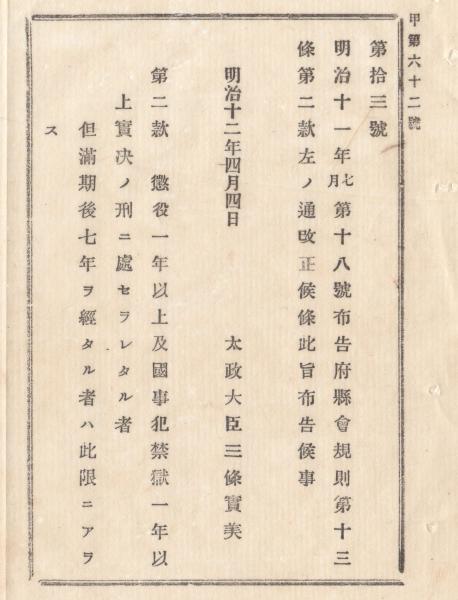 甲第六十二號
第拾三號
明治十一年七月第十八號布告府縣會規則第十三
條第二款左ノ通改正候條此旨布告候事
明治十二年四月四日
太政大臣三條實美
第二款 懲役一年以上及國事犯禁獄一年以
上實决ノ刑ニ處セラレタル者
但滿期後七年ヲ經タル者ハ此限ニアラ
ス